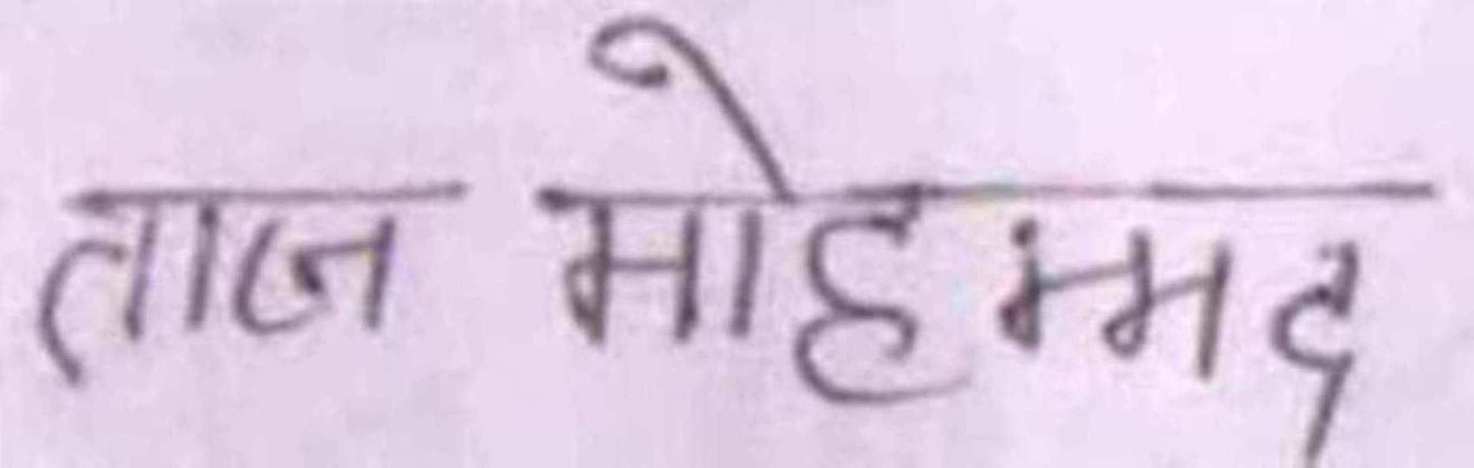 ताज मोहम्मद